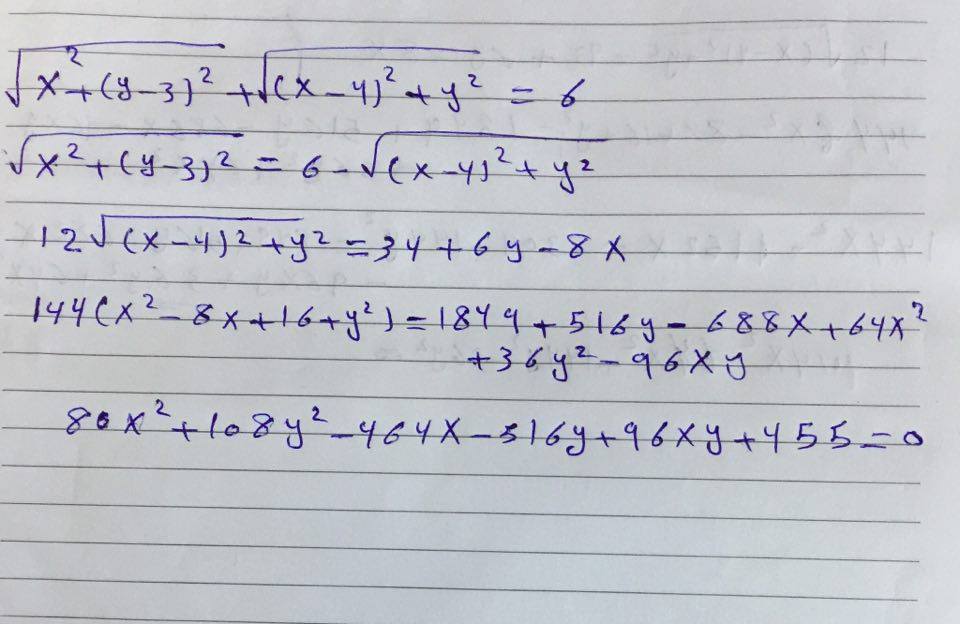 √(x² + (y-3)²) + √((x-4)² + y²) = 6
√(x² + (y-3)²) = 6 - √((x-4)² + y²)
12√((x-4)² + y²) = 34 + 6y - 8x
144(x² - 8x + 16 + y²) = 1849 + 516y - 688x + 64x²
+ 36y² - 96xy
80x² + 108y² - 464x - 516y + 96xy + 455 = 0